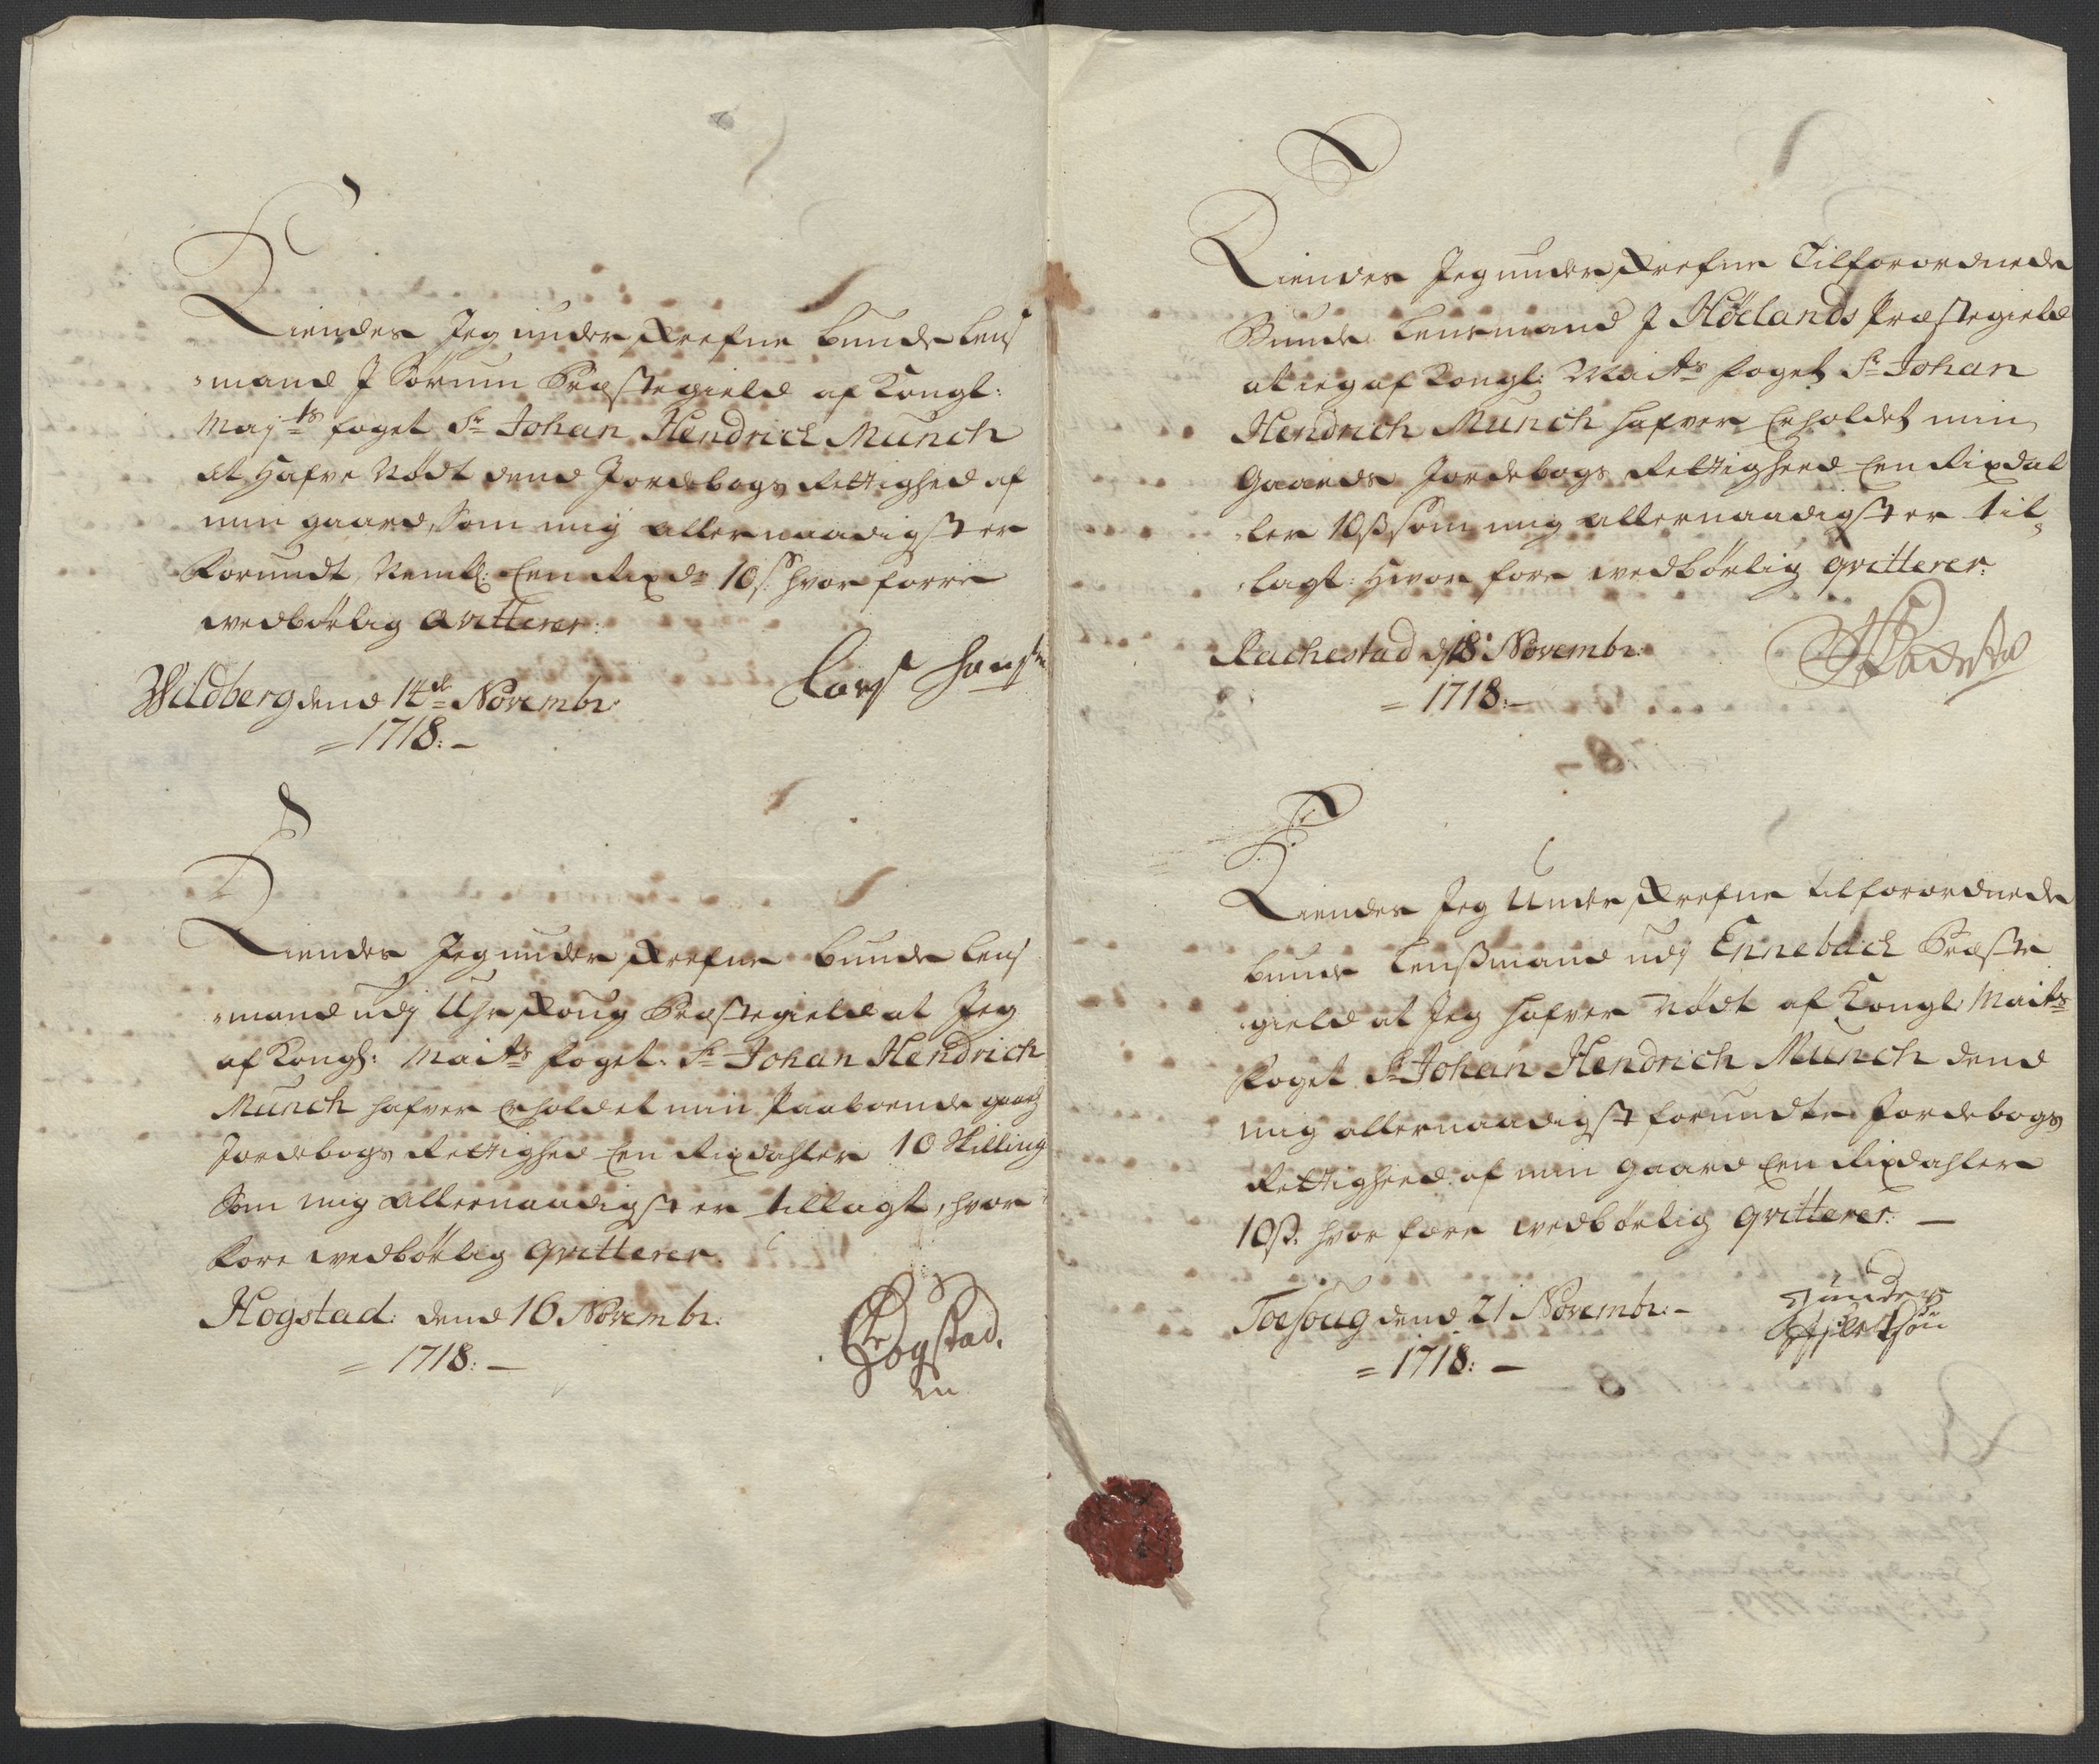 Kiendes Jeg underskrefne bunde lens
mand J Sørum Præstegield af Kongl:
May:ts foget Sr Johan Hendrich Munch
at hafve Nødt dend Jordebogs Rettighed af
min gaard, Som mig allernaadigst er
forundt, Neml: Een Rixdr 10 s. hvorforre
wedbørlig qvitterer:
Wildberg dend 14de Novembr:
=1718:-
Lars Hansen
Kiendes Jeg underskrefne bunde lens
mand udj Uhrskoug Præstegield at Jeg
af Kongl: Maits foget: Sr Johan Hendrich
Munch hafver Erholdet min Paaboende gaards
Jordebogs Rettighed Een Rixdahler 10 Skilling
Som mig allernaadigst er tillagt, hvor
fore wedbørlig qvitterer.
Hogstad: dend 16 Novembr:
=1718:-
Hogstad.
Kiendes Jeg underskrefne Tilforordnede
Bunde Lensmand J Høelands Præstegield
at ieg af Kongl: Maits foget Sr Johan
Hendrich Munch hafver Erholdet min
Gaards Jordebogs Rettigheed Een Rixdal
ler 10ß som mig allernaadigst er til
lagt: hvor fore wedbørlig qvitterer:
Rachestad d 18 Novembr:
=1718:-
Kiendes Jeg Underskrefne tilforordnede
bunde Lenßmand udj Ennebach Præste
gield at Jeg hafver Nødt af Kongl: Maits
foget Sr Johan Hendrich Munch dend
mig allernaadigst forundte Jordebogs
Rettigheed af min gaard Een Rixdahler
10ß. hvor fore wedbørlig qvitterer: -
Toesoug dend 21 Novembr:-
=1718:-